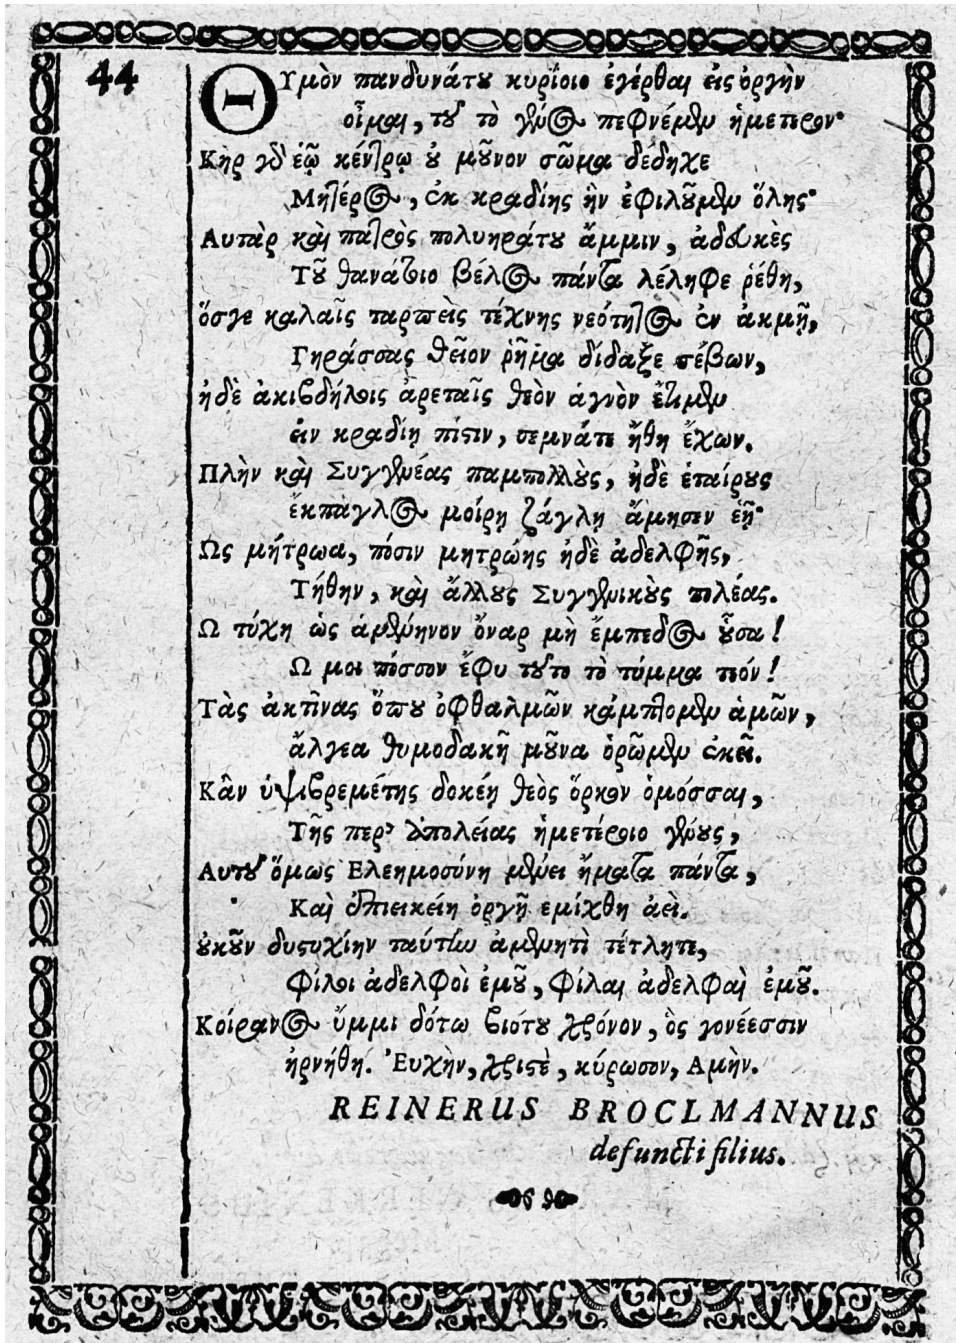 44
ΘΥμὸν πανδυνάτου κυρίοιο ἐγέρθαι εἰς ὀργὴν
οἶμαι, τοῦ τὸ γένος πεφνέμεν ἡμετερον·
Κὴρ γδ ἑῷ κέντρῳ οὐ μοῦνον σῶμα δέδηχε
Μητέρος, ἐκ κραδίης ἣν ἐφιλοῦμεν ὅλης·
Αυτὰρ καὶ πατρὸς πολυηράτου ἄμμιν, ἀδευκὲς
Τοῦ θανάτοιο βέλος πάντα λέληφε ῥέθη,
ὅσγε καλαῖς ταρπεὶς τέχνης νεότητος ἐν ἀκμῇ,
Γηράσσας θεῖον ῥῆμα δίδαξε σέβων,
ἠδὲ ἀκιβδήλοις ἀρεταῖς θεὸν ἁγνὸν ἔτιμεν
ἐιν κραδίῃ πίστιν, σεμνάτε ἤθη ἔχων.
Πλὴν καὶ Συγγενέας παμπολλοὺς, ἠδὲ ἑταίρους
ἐκπὰγλος μοίρῃ ζάγλῃ ἄμησεν ἑῇ·
Ως μήτρωα, πόσιν μητρώης ἠδὲ ἀδελφῆς,
Τήθην, καὶ ἄλλους Συγγενικοὺς πολέας.
Ω τύχη ὡς ἀμενηνον ὄναρ μὴ ἔμπεδος οὖσα!
Ω μοι πόσσον ἔφυ τοῦτο τὸ τύμμα τεόν!
Τὰς ἀκτῖνας ὅπου ὀφθαλμῶν κάμπτομεν ἁμῶν,
ἄλγεα θυμοδακῆ μοῦνα ὁρῶμεν ἐκεῖ.
Κἂν ὑψιβρεμέτης δοκέῃ θεὸς ὅρκον ὀμόσσαι,
Τῆς περ᾽ ἀπολείας ἡμετέροιο γένους,
Αυτοῦ ὅμως Ελεημοσύνη μένει ἤματα πάντα,
Καὶ ἐπιεικείη ὀργῇ εμίχθη ἀεὶ.
οὐκοῦν δυστυχίην ταύτην ἀμενητὶ τέτλητε,
Φίλοι ἀδελφοὶ ἐμοῦ, Φίλαι ἀδελφαὶ ἐμοῦ.
Κοίρανος ὔμμι δότω βιότου χρόνον, ὃς γονέεσσιν
ἠρνήθη. Ἐυχὴν, χριστὲ, κύρωσον, Αμὴν.
REINERUS BROCLMANNUS
defuncti filius.